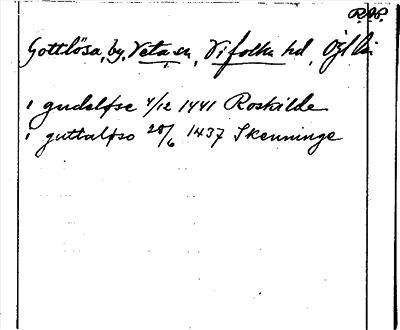 R.A.P.
Gottlösa, by, Veta sn, Vifolka hd, Ögl län
i gudsløse 4/12 1441 Roskilde
i guttaløso 28/6 1437 Skenninge